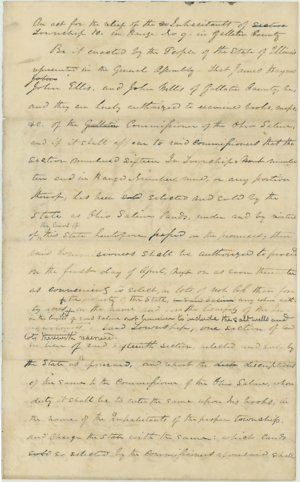 An act for the relief of the Inhabitants of
Township 10. in Range No 9. in Gallatin County
Be it enacted by the People of the State of Illinois
represented in the General Assembly. That James
John Ellis, and John Wells of Gallatin County, be,
and they are hereby authorized to examine books, maps
&c. of the Gallatin Commissioner of the Ohio Saline,
and if it shall appear to said commissioners that the
section numbered sixteen in Township
ten and in Range Number nine, or any portion
thereof, has been sold selected and sold by the
State as Ohio Saline lands, under and by virtue
the laws of
of this State heretofore passed in
said commissioners shall be authorized to proceed
on the first day of April next or as soon thereafter
as convenient, to select, in lots of not less than
the property of the State,
by in the name and
not to include the salt wells and
said Township, one section of land
lots therewith reserved
in lieu of said sixteenth section selected and sold by
the State as aforesaid, and report the description
of the same to the Commissioner of the Ohio Saline, whose
duty it shall be to enter the same upon his books, in
the name of the Inhabitants of the proper township,
and charge the State with the same: which lands
sold so selected by the commissioners aforesaid shall